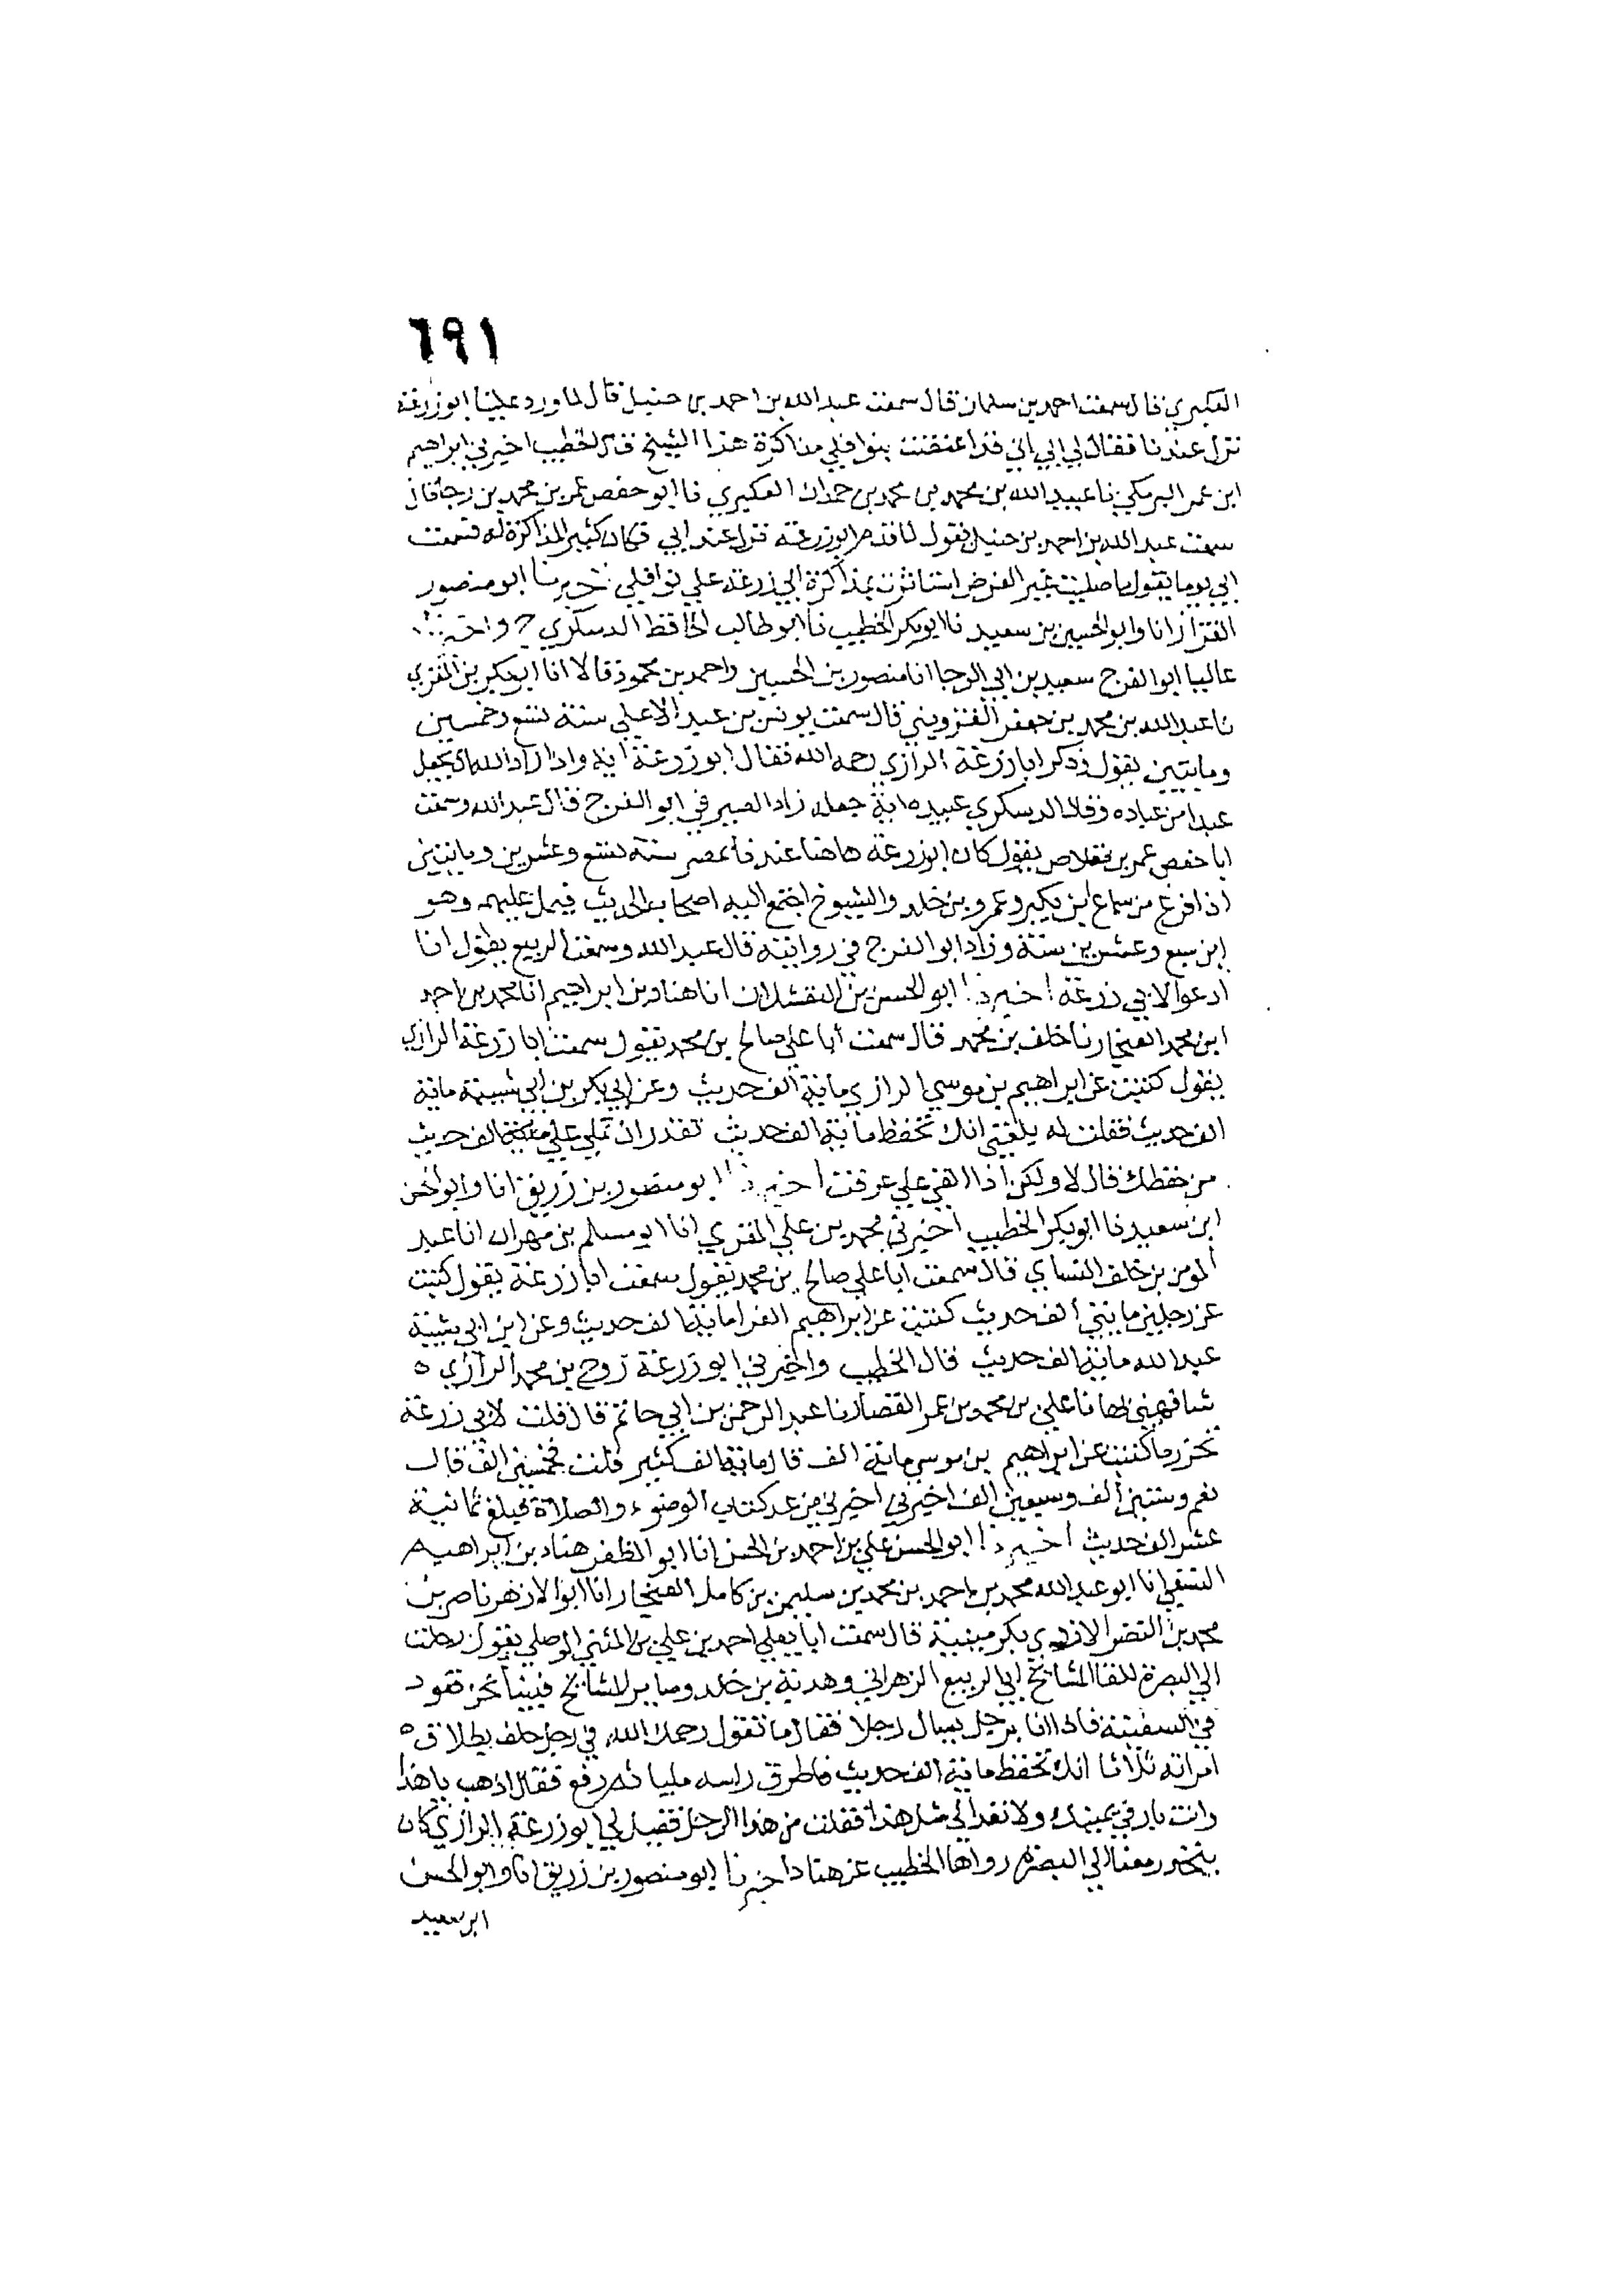 ٦٩١
العكبري قال سمعت احمد بن سلمان قال سمعت عبد الله بن احمد بن حنبل قال لما ورد علينا ابو زرعة
نزل عندنا فقال لي ابي يا بني قد اعتضت بنوافلي مذاكرة هذا الشيخ قال الخطيب اخبرني ابراهيم
ابن عمر البرمكي نا عبيد الله بن محمد بن محمد بن حمدان العكبري نا ابو حفص عمر بن محمد بن رجا قال
سمعت عبد الله بن احمد بن حنبل يقول لما قدم ابو زرعة نزل عند ابي فكان كثير المذاكرة له فسمعت
ابي يوما يقول ما صليت غير الفرض استاثرت بمذاكرة ابي زرعة علي نوافلي اخبرنا ابو منصور
القزاز انا وابو الحسن بن سعيد نا ابو بكر الخطيب نا ابو طالب الحافظ الدسكري ح واخبرنا
عاليا ابو الفرج سعيد بن ابي الرجا انا منصور بن الحسين واحمد بن محمود قالا انا ابو بكر بن المقري
نا عبد الله بن محمد بن جعفر القزويني قال سمعت يونس بن عبد الاعلي سنة تسع وخمسين
ومايتين يقول وذكر ابا زرعة الرازي رحمه الله فقال ابو زرعة اية واذا اراد الله ان يجعل
عبدا من عباده وقال الدسكري عبيده اية جعله زاد الصيرفي ابو الفرج قال عبد الله وسمعت
ابا حفص عمر بن مقلاص يقول كان ابو زرعة هاهنا عندنا بمصر سنة تسع وعشرين وماىتين
اذا فرغ من سماع ابن بكير وعمرو بن خلد والشيوخ اجتمع اليه اصحاب الحديث فيمل عليهم وهو
ابن سبع وعشرين سنة وزاد ابو الفرج في روايته قال عبد الله وسمعت الربيع يقول انا
ادعوا لابي زرعة اخبرنا ابو الحسن بن القشلان انا هناد بن ابراهيم انا محمد بن احمد
ابن محمد الغنجار نا خلف بن محمد قال سمعت أبا علي صالح بن محمد يقول سمعت ابا زرعة الرازي
يقول كتبت عن ابراهيم بن موسي الرازي ماية الف حديث وعن ابي بكر بن ابي شيبة ماية
الف حديث فقلت له بلغني انك تحفظ ماية الف حديث تقدر ان تملي علي ماية الف حديث
من حفظك قال لا ولكن اذا القي علي عرفت اخبرنا ابو منصور بن زريق انا وابو الحسن
ابن سعيد نا ابو بكر الخطيب اخبرني محمد بن علي المقري انا ابو مسلم بن مهران انا عبد
المومن بن خلف النساي قال سمعت ابا علي صالح بن محمد يقول سمعت ابا زرعة يقول كتبت
عن رجلين مايتي ألف حديث كتبت عن ابراهيم الفرا ماية الف حديث وعن ابن ابي شيبة
عبد الله ماية الف حديث قال الخطيب واخبرني ابو زرعة روح بن محمد الرازي ه
شافهني بها نا علي بن محمد بن عمر القصار نا عبد الرحمن بن ابي حاتم قال قلت لابي زرعة
تحزر ما كتبت عن ابراهيم بن موسي ماية الف قال ماية الف كثير قلت فخمسين الف قال
نعم وستين ألف وسبعين الف اخبرني اخبرني من عد كتاب الوضوء والصلاة فبلغ ثمانية
عشر الف حديث اخبرنا ابو الحسن علي بن احمد بن الحسن انا ابو المظفر هناد بن ابراهيم
النسفي انا ابو عبد الله محمد بن احمد بن محمد بن سليمن بن كامل الغنجار انا ابو الازهر ناصر بن
محمد بن النضر الازدي بكرمينية قال سمعت ابا يعلي احمد بن علي بن المثني الموصلي يقول رحلت
الي البصرة للقا المشايخ ابي الربيع الزهراني وهدبة بن خلد وساير المشايخ فبينا نحن قعود
في السفينة فاذا انا برجل يسال رجلا فقال ما تقول رحمك الله في رجل حلف بطلاق ه
امراته ثلاثا انك تحفظ ماية الف حديث فاطرق راسه مليا ثم رفع فقال اذهب يا هذا
وانت بار في يمينك ولا تعد الي مثل هذا فقلت من هذا الرجل فقيل لي ابو زرعة الرازي كان
ينحدر معنا الي البصرة رواها الخطيب عن هناد اخبرنا ابو منصور بن زريق انا وابو الحسن
ابن سعيد